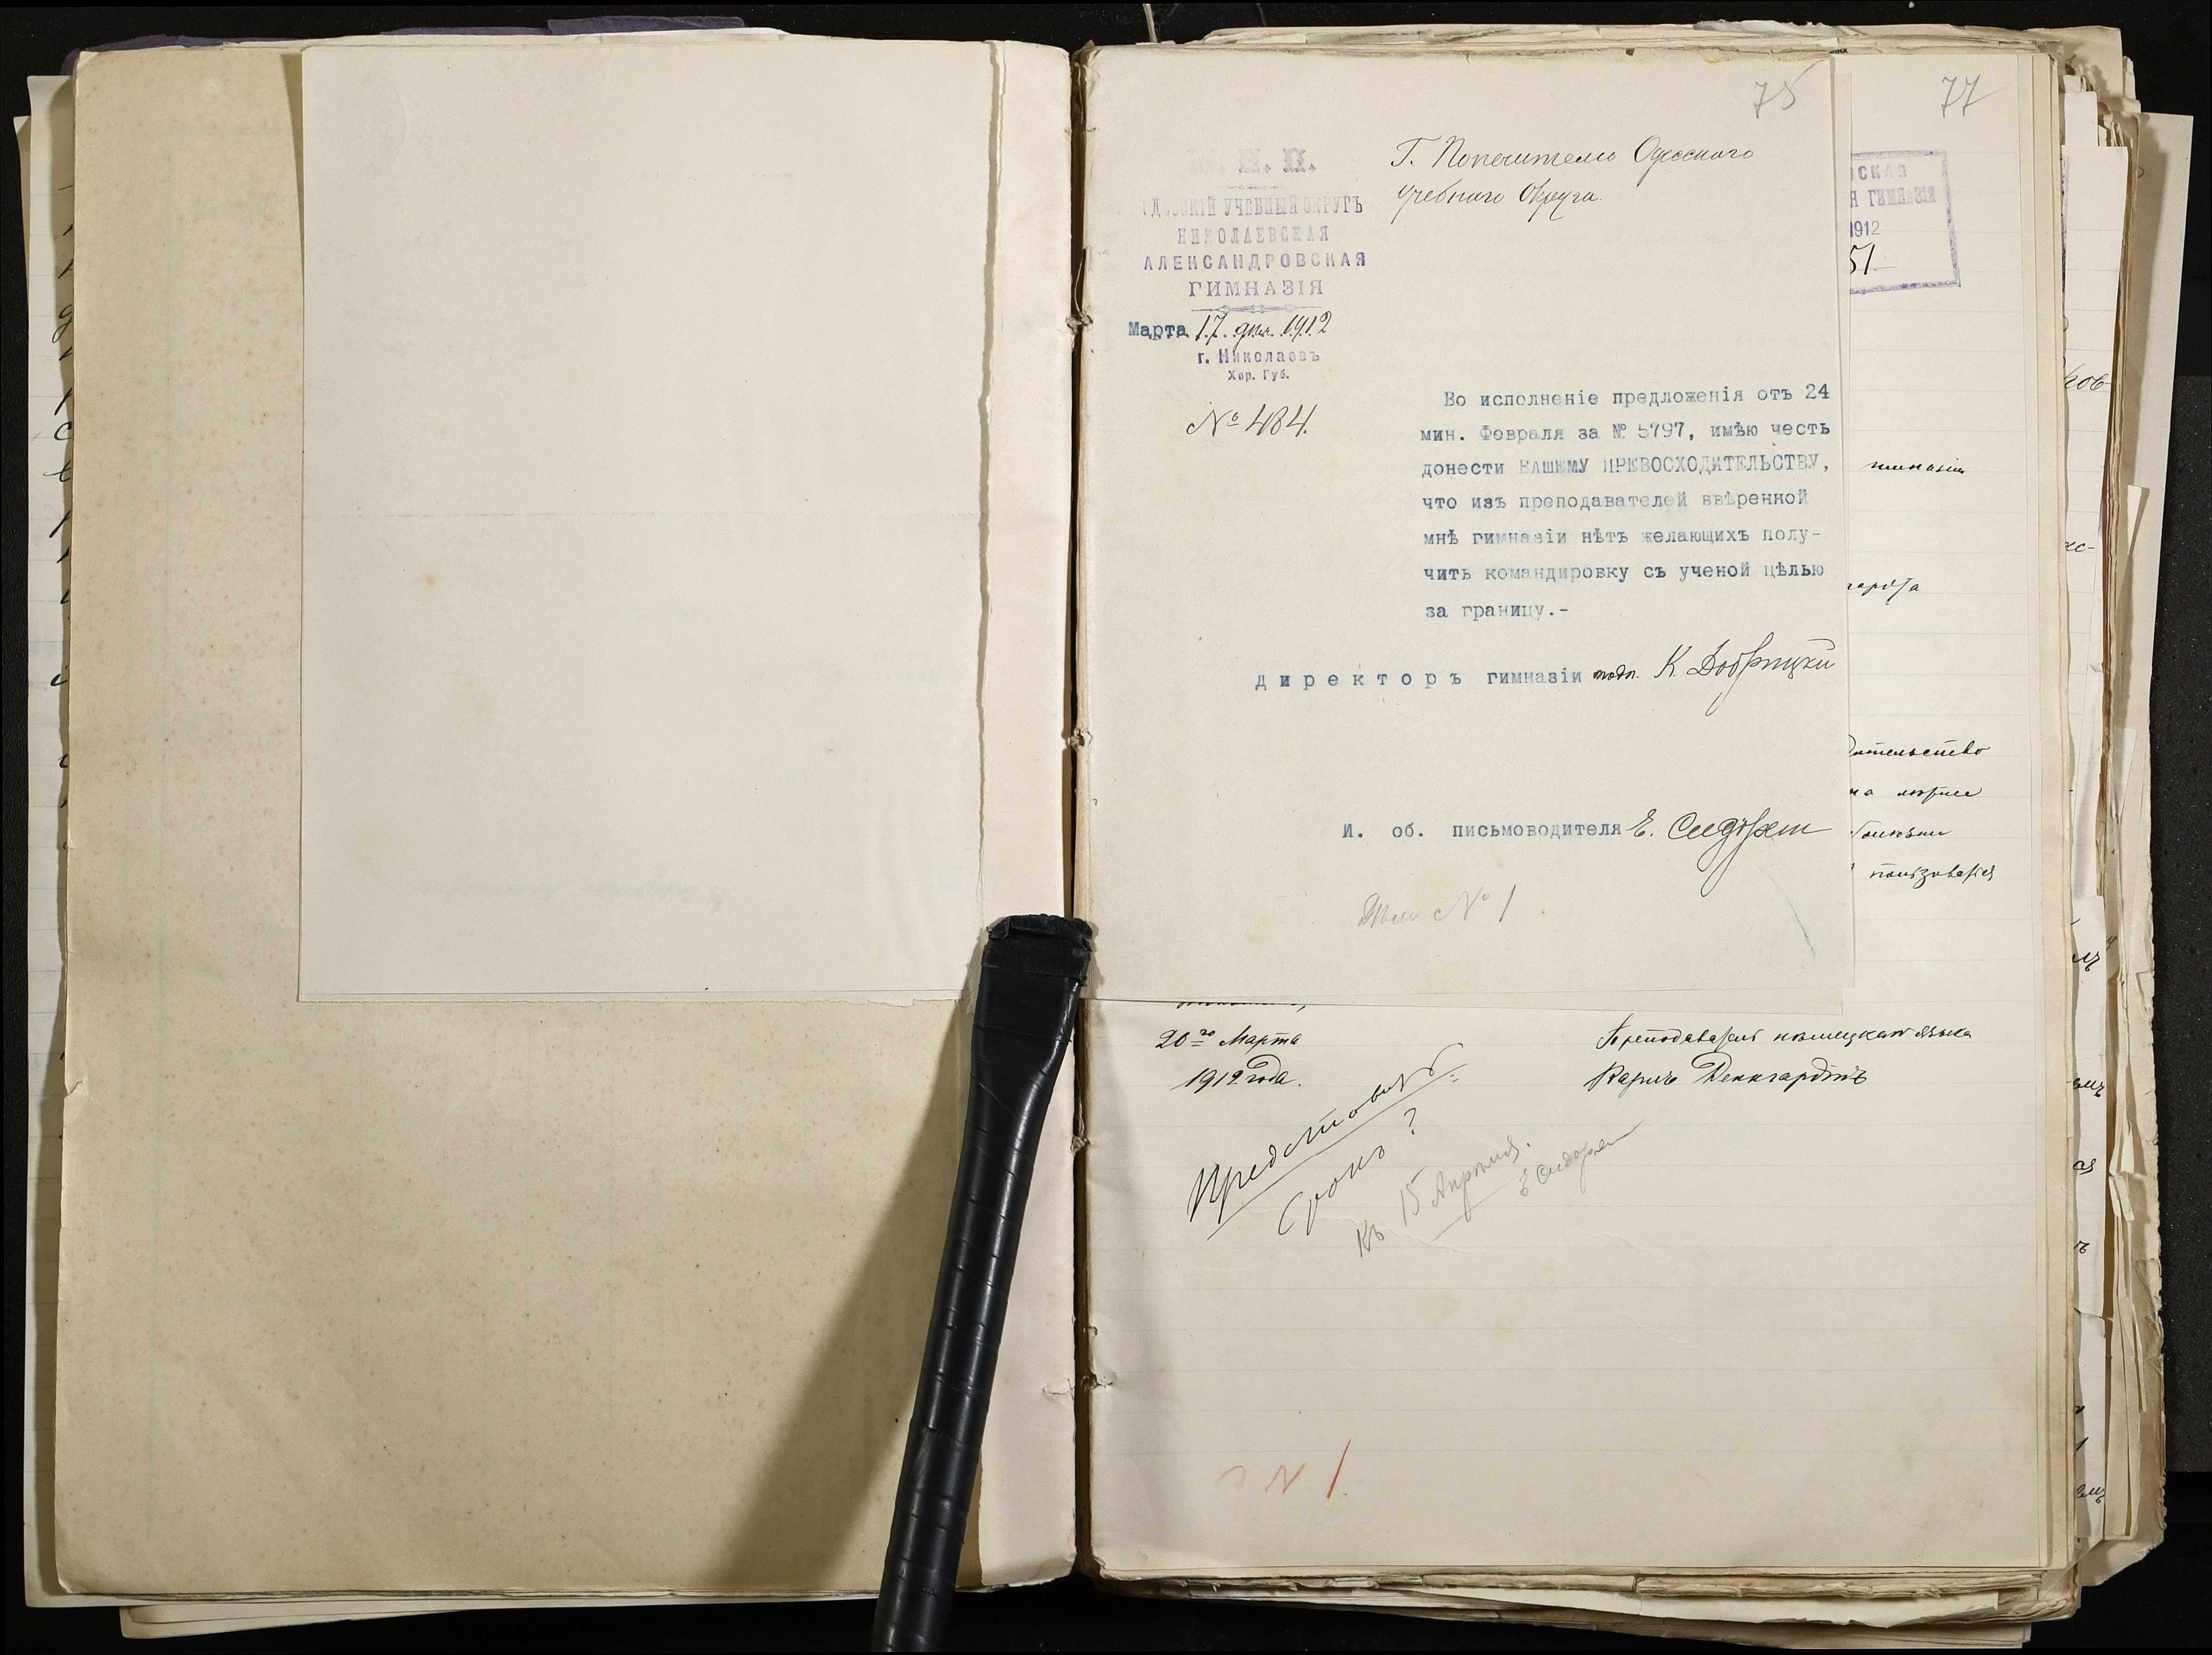 75
77
М. Н. П.
ОДЕССКІЙ УЧЕБНЫЙ ОКРУГЪ
НИКОЛАЕВСКАЯ
АЛЕКСАНДРОВСКАЯ
ГИМНАЗІЯ
Марта 17 дня 1912
г. Николаевъ
Хер. Губ.
№ 484.
Г. Попечителю Одесскаго
Учебнаго Округа.
Во исполненіе предложенія отъ 24
мин. Февраля за № 5797, имѣю честь
донести ВАШЕМУ ПРЕВОСХОДИТЕЛЬСТВУ,
что изъ преподавателей ввѣренной
мнѣ гимназіи нѣтъ желающихъ полу-
чить командировку съ ученой цѣлью
за границу.-
Директоръ гимназіи подп. К. Добрицкій
И. об. письмоводителя Е.
№ 1
СКАЯ
Я ГИМНАЗІЯ
1912
51
гимназіи
на
пользоваться
20го Марта
1912 года.
Преподаватель нѣмецкаго языка
Карлъ
Представить
Срокъ?
Къ 15 Апрѣля.
N 1.